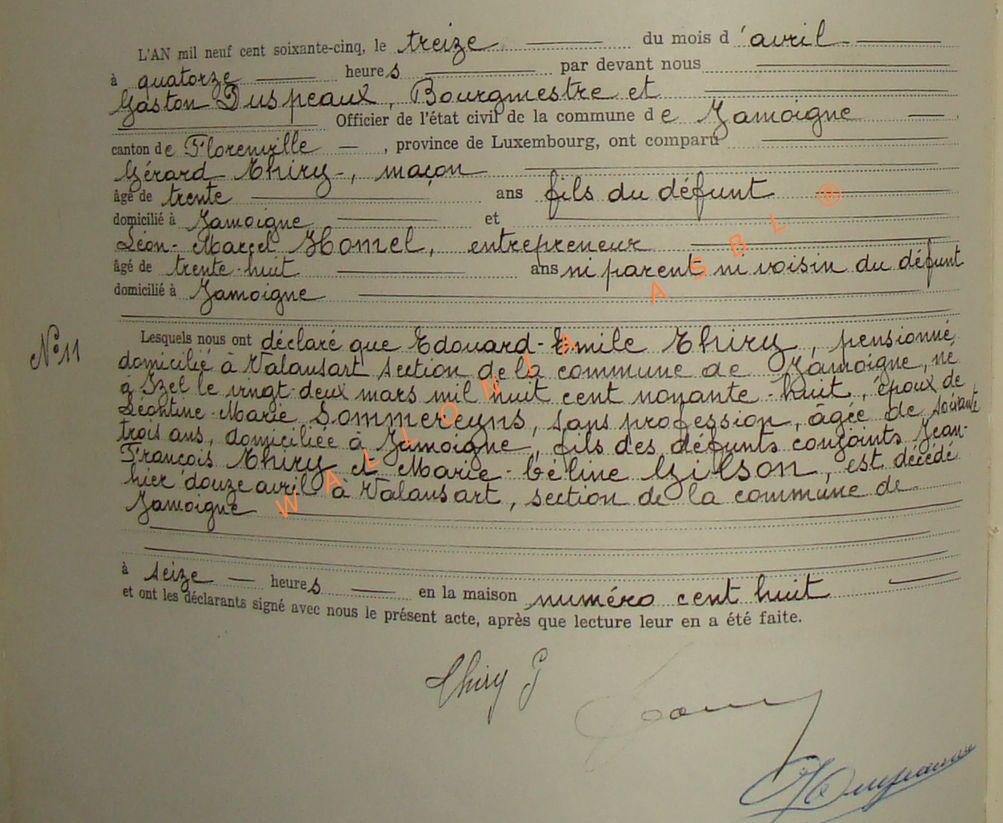 L'AN mil neuf cent soixante-cinq, le treize du mois d'avril
à quatorze heures par devant nous
Gaston Duspeaux, Bourgmestre et
Officier de l'état civil de la commune de Jamoigne
canton de Florenville, province de Luxembourg, ont comparu
Gérard Thiry, maçon
âgé de trente ans fils du défunt
domicilié à Jamoigne et
Léon-Marcel Homel, entrepreneur
âgé de trente-huit ans ni parent ni voisin du défunt
domicilié à Jamoigne
N° 11
Lesquels nous ont déclaré que Edouard-Emile Thiry, pensionné,
domicilié à Valansart section de la commune de Jamoigne, né
à Izel le vingt-deux mars mil huit cent nonante-huit, époux de
Léontine-Marie Sommereyns, sans profession, âgée de soixante
trois ans, domiciliée à Jamoigne, fils des défunts conjoints Jean-
François Thiry et Marie-Céline Gilson, est décédé
hier douze avril à Valansart, section de la commune de
Jamoigne
à seize heures en la maison numéro cent huit
et ont les déclarants signé avec nous le présent acte, après que lecture leur en a été faite.
Thiry G
WALLONIA ASBL ®